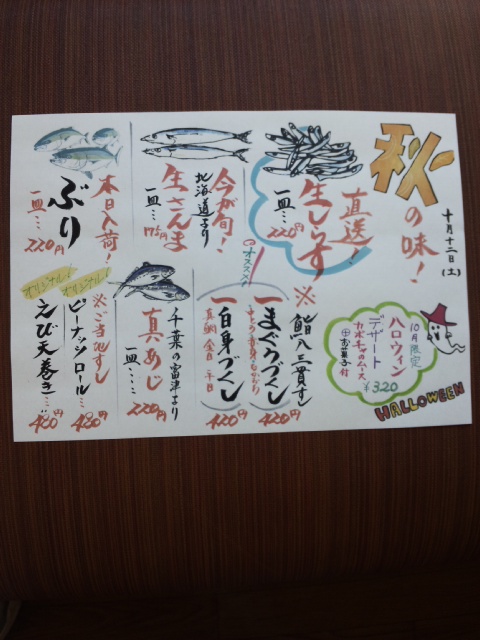 十月十二日(土)
秋
の味!
直送!
生しらす
一皿…220円
今が旬!
北海道より
生さんま
一皿…175円
本日入荷!
ぶり
一皿…220円
10月限定
ハロウィン
デザート
カボチャのムース
田お菓子付
¥320
HALLOWEEN
オススメ!
※
鮨八三貫
一まぐろづくし
420円
一白身づくし
420円
千葉の富津より
真あじ
一皿…220円
※ご当地すし
オリジナル!
ピーナッツロール…480円
オリジナル!
えび天巻き…480円